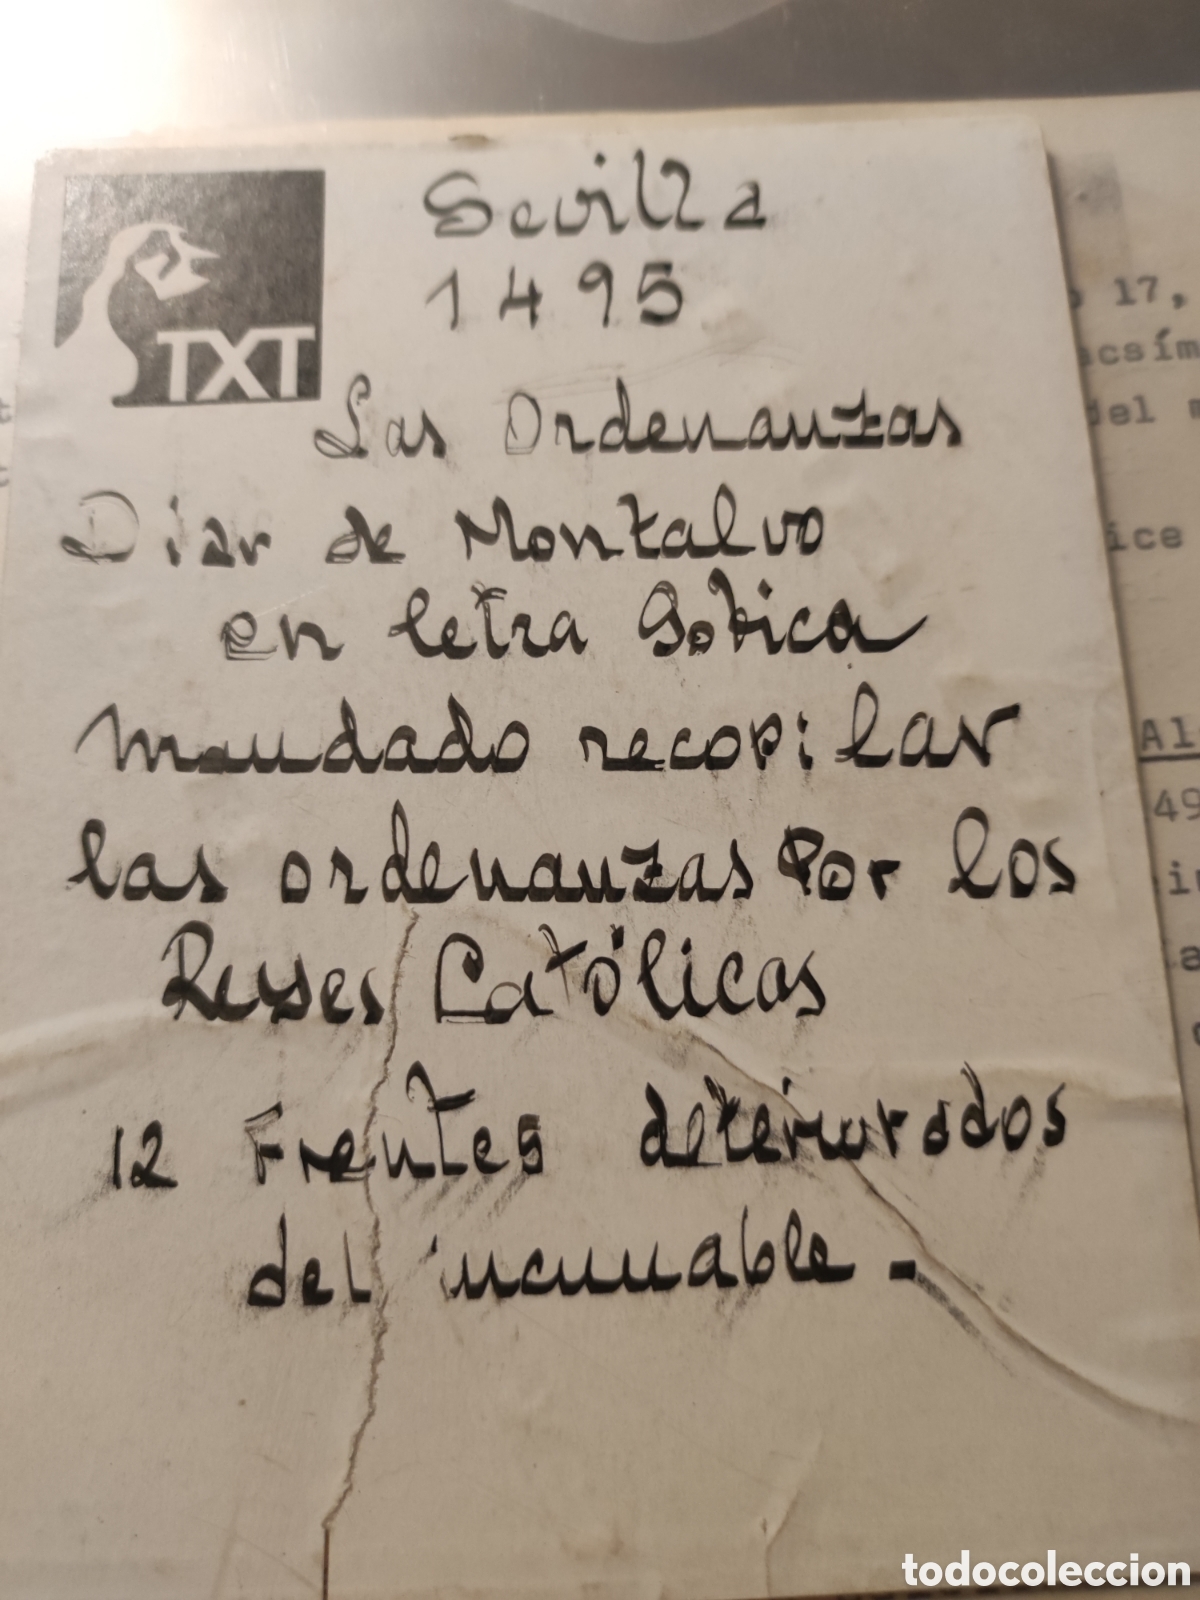 TXT
Sevilla
1495
Las Ordenanzas
Diar de Montalvo
en letra Gotica
mandado recopilar
las ordenanzas Por los
Reyes Católicos
12 Frentes deteriorados
del incunable -
17,
acsím
del
ice
Al
49
todocoleccion